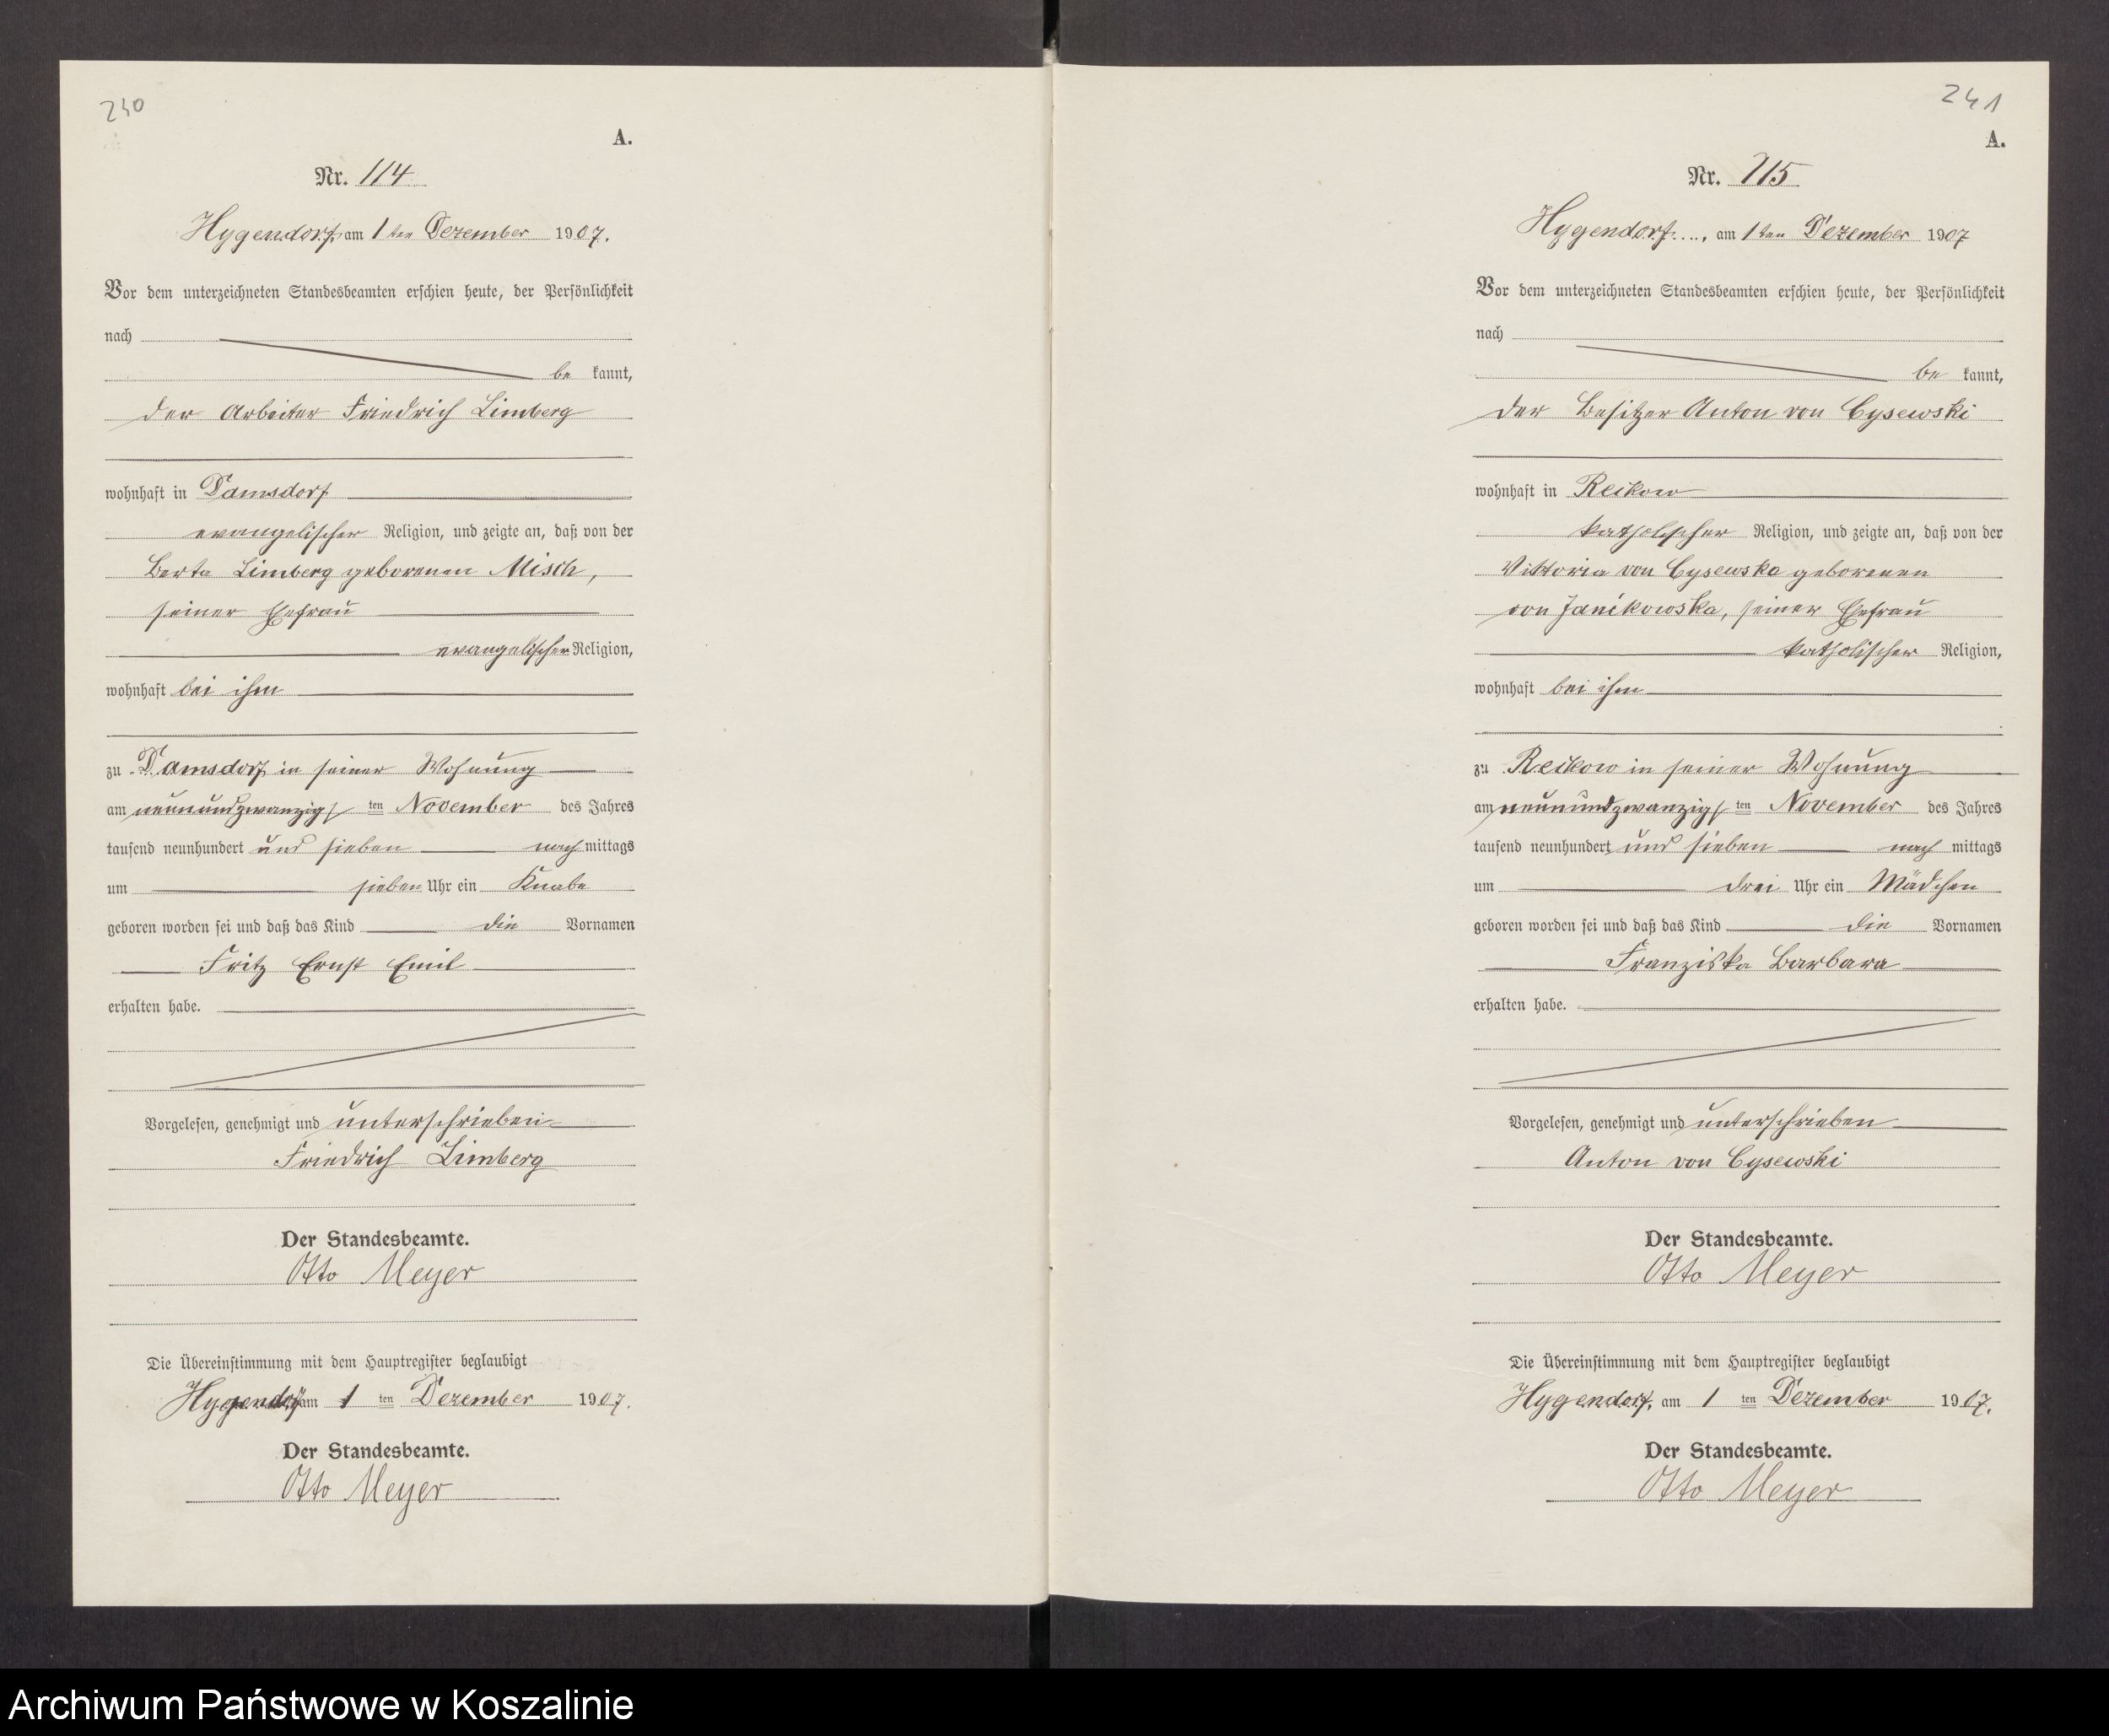 230
A.
Nr. 114
Hygendorf, am 1ten Dezember 1907.
Vor dem unterzeichneten Standesbeamten erschien heute, der Persönlichkeit
nach
be kannt,
der Arbeiter Friedrich Limberg
wohnhaft in Damsdorf
evangelischer Religion, und zeigte an, daß von der
Berta Limberg geborenen Misch,
seiner Ehefrau
evangelischer Religion,
wohnhaft bei ihm
zu Damsdorf in seiner Wohnung
am neunundzwanzigs ten November des Jahres
tausend neunhundert und sieben nach mittags
um sieben Uhr ein Knabe
geboren worden sei und daß das Kind die Vornamen
Fritz Ernst Emil
erhalten habe.
Vorgelesen, genehmigt und unterschrieben
Friedrich Limberg
Der Standesbeamte.
Otto Meyer
Die Übereinstimmung mit dem Hauptregister beglaubigt
Hygendorf am 1 ten Dezember 1907.
Der Standesbeamte.
Otto Meyer
241
A.
Nr. 115
Hygendorf, am 1ten Dezember 1907
Vor dem unterzeichneten Standesbeamten erschien heute, der Persönlichkeit
nach
be kannt,
der Besitzer Anton von Cysewski
wohnhaft in Reikow
katholischer Religion, und zeigte an, daß von der
Viktoria von Cysewska geborenen
von Janikowska, seiner Ehefrau
katholischer Religion,
wohnhaft bei ihm
zu Reikow in seiner Wohnung
am neunundzwanzigs ten November des Jahres
tausend neunhundert und sieben nach mittags
um drei Uhr ein Mädchen
geboren worden sei und daß das Kind die Vornamen
Franziska Barbara
erhalten habe.
Vorgelesen, genehmigt und unterschrieben
Anton von Cysewski
Der Standesbeamte.
Otto Meyer
Die Übereinstimmung mit dem Hauptregister beglaubigt
Hygendorf, am 1 ten Dezember 1907.
Der Standesbeamte.
Otto Meyer
Archiwum Państwowe w Koszalinie